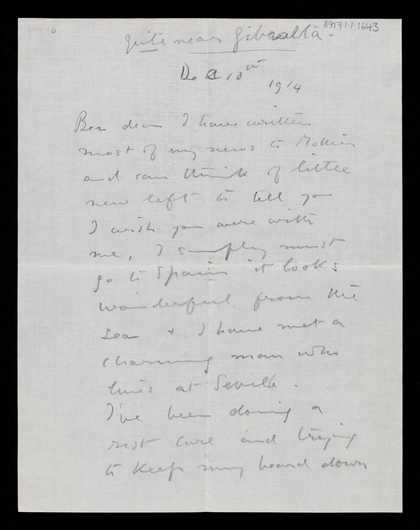 quite near Gibralta.
Dec 10th
1914
Ben dear I have written
most of my news to Mother
and can think of little
new left to tell you
I wish you were with
me, I simply must
go to Spain it looks
wonderful from the
Sea + I have met a
charming man who
lives at Seville.
I've been doing a
rest cure and trying
to keep my head down